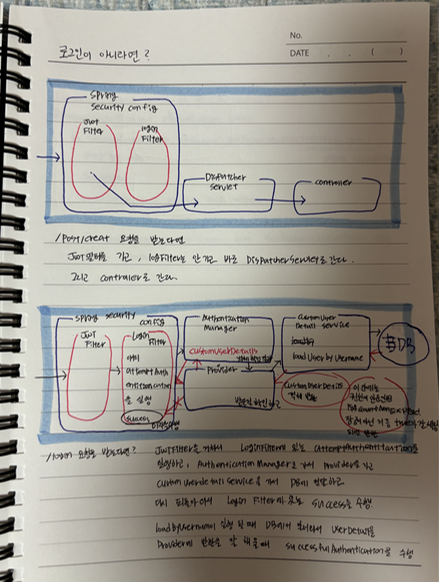 No.
DATE . . ( )
로그인이 아니라면?
Spring
security config
Jwt
Filter
login
Filter
Dispatcher
Servlet
controller
/Post/creat 요청을 받는다면
Jwt필터를 가고, loginFilter는 안 가고 바로 DispatcherServlet로 간다.
그리고 controller로 간다.
Spring security
config
Jwt
Filter
Login
Filter
에서
attemptAuth
entication
을 실행
success
Authentication
Manager
CustomUserDetails
Provider
CustomUser
Detail service
load User by Username
DB
CustomUserDetails
객체
/login 요청을 받는다면?
JwtFilter을 거쳐서 LoginFilter에 있는 attemptAuthentication을
실행하고, Authentication Manager로 가서 Provider을 가고
Custom userdetail service를 가서 DB에
다시 되돌아와서 Login Filter에 있는 success를 수행.
loadbyUsername이 실행 될 때 DB에서 UserDetail을
Provider에 반환을 잘 해줄때 successfulAuthentication을 수행